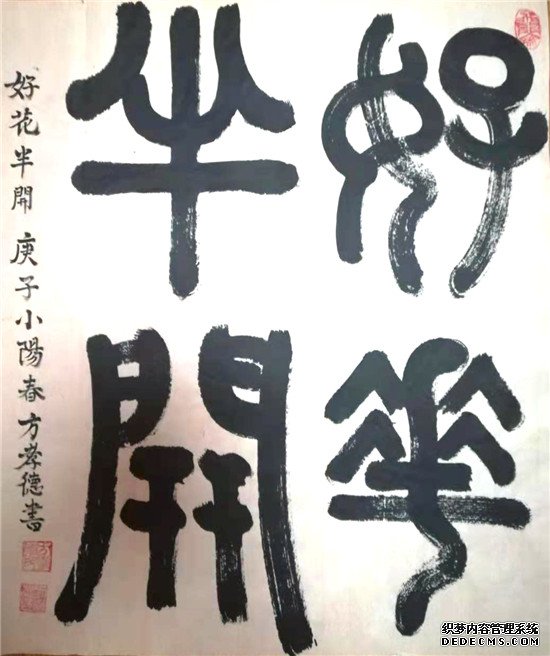 好華
半開
好花半開 庚子小陽春方孝德書
织梦内容管理系统
DEDECMS.COM